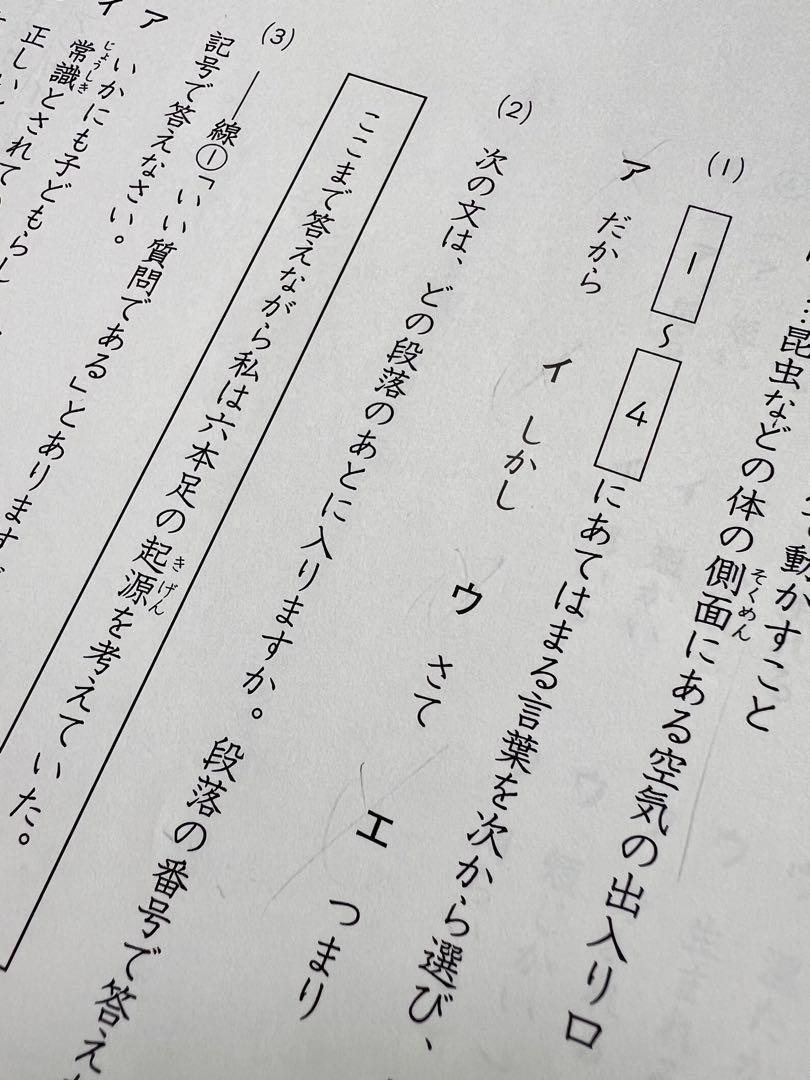 動かすこと
…昆虫などの体の側面にある空気の出入り口
(1) 1～4にあてはまる言葉を次から選び、
ア だから イ しかし ウ さて エ つまり
(2) 次の文は、どの段落のあとに入りますか。段落の番号で答え
ここまで答えながら私は六本足の起源を考えていた。
(3) ――線①「いい質問である」とあります
記号で答えなさい。
ア いかにも子どもらし
イ 常識とされてい
正しい